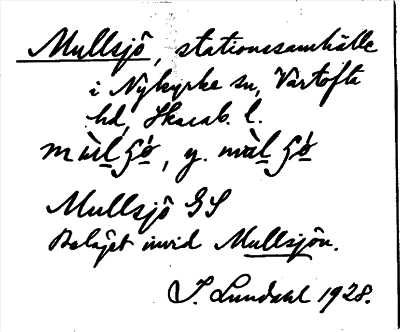 Mullsjö, stationssamhälle
i Nykyrke sn, Vartofta
hd, Skarab. l.
mùlʃö́, y. mùlʃö́
Mullsjö GS
Beläget invid Mullsjön.
I. Lundahl 1928.